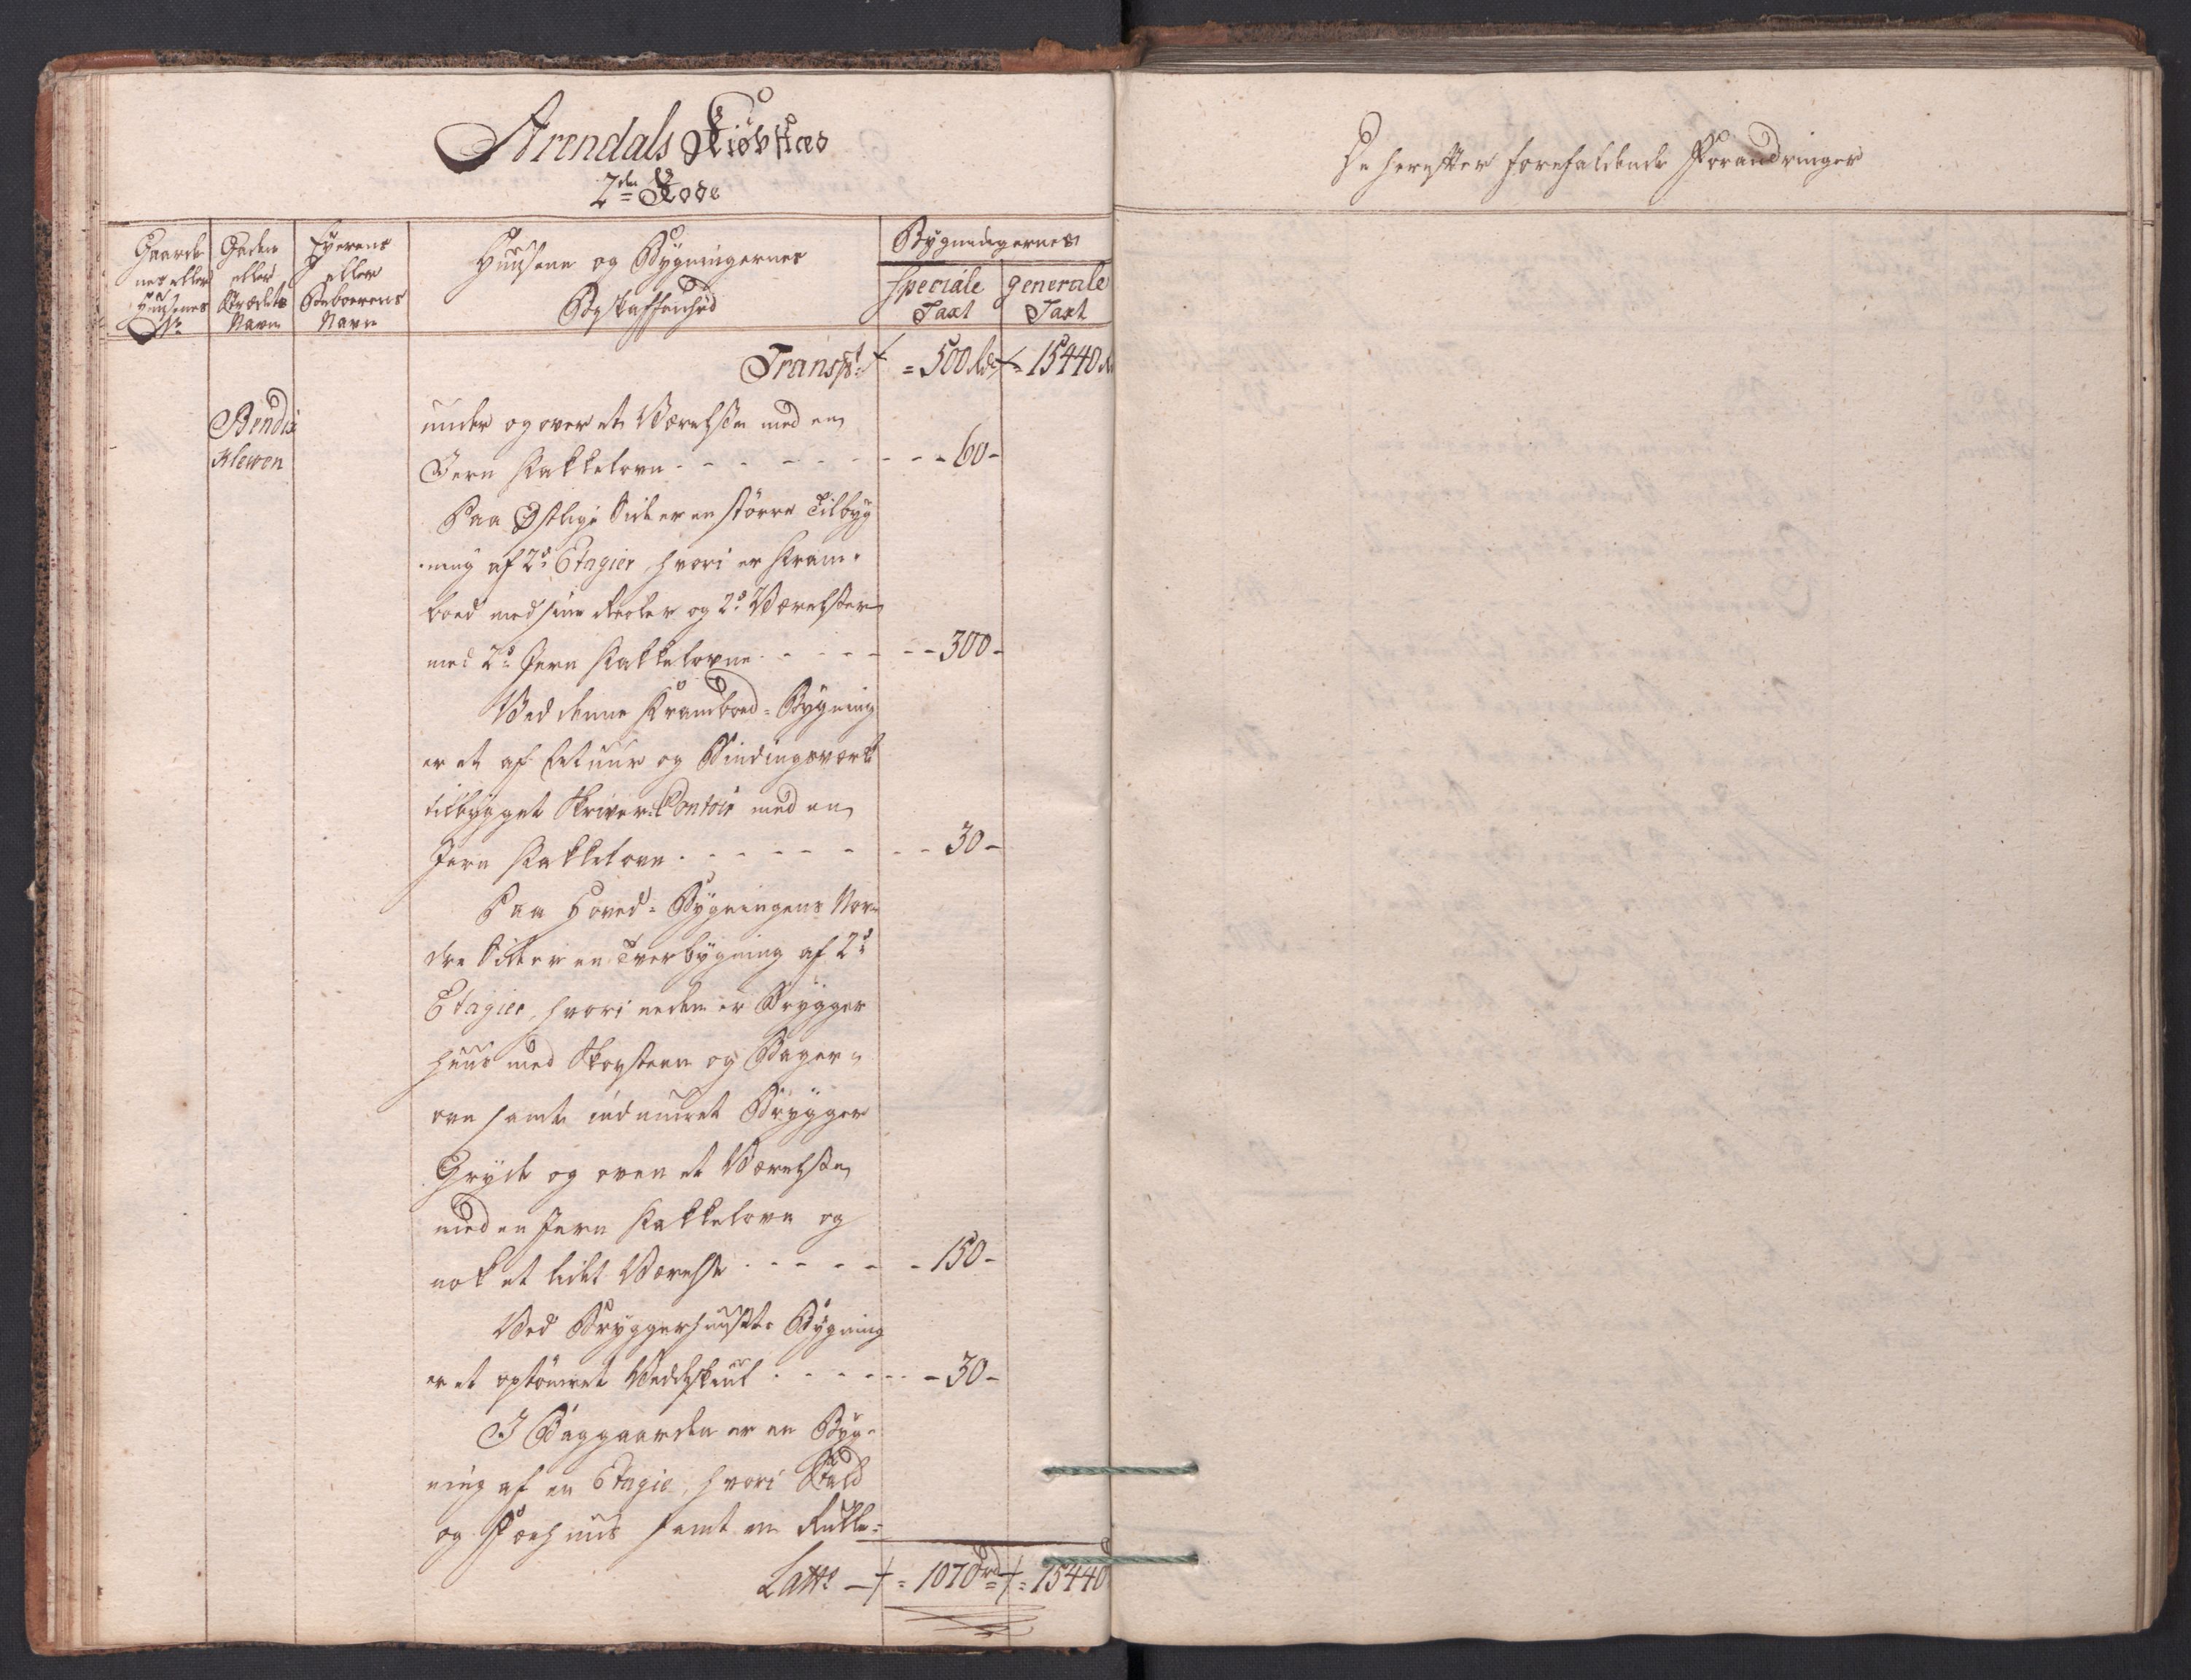 Arendals Kiøbstæd
2den Rode
Gaarde
nes eller
Huusenes
No
Gadens
eller
Strædets
Navn
Eyerens
eller
Beboerens
Navn
Huusene og Bygningernes
Beskaffenhed
Bygningernes
speciale
Taxt
generale
Taxt
Transpt = 500 Rd = 15440 R
Bendix
Klewen
under og over et Værelse med en
Jern Kakkelovn - - - - - 60 -
Paa Østlige Side er en større Tilbyg
ning af 2de Etagier, hvori er Kram-
boed med sine Reoler og 2de Værelser
med 2de Jern Kakkelovne - - - - 300 -
Ved denne Kramboed-Bygning
er et af Muur og Bindingsværk
tilbygget Skriver-Contoir med en
Jern Kakkelovn - - - - - 30 -
Paa Hoved-Bygningens Nor-
dre Side er en Tverbygning af 2de
Etagier, hvori neden er Brygger
huus med Skorsteen og Bager-
ovn samt indmuret Brygger
Gryde og oven et Værelse
med en Jern Kakkelovn og
nok et lidet Værelse - - - - 150 -
Ved Bryggerhuusets Bygning
er et optømret Vedeskiul - - - - 30 -
I Baggaarden er en Byg-
ning af en Etagie, hvori Stald
og Foehuus samt en Rulle-
Latts = 1070 rd = 15440
De herefter forefaldende Forandringer